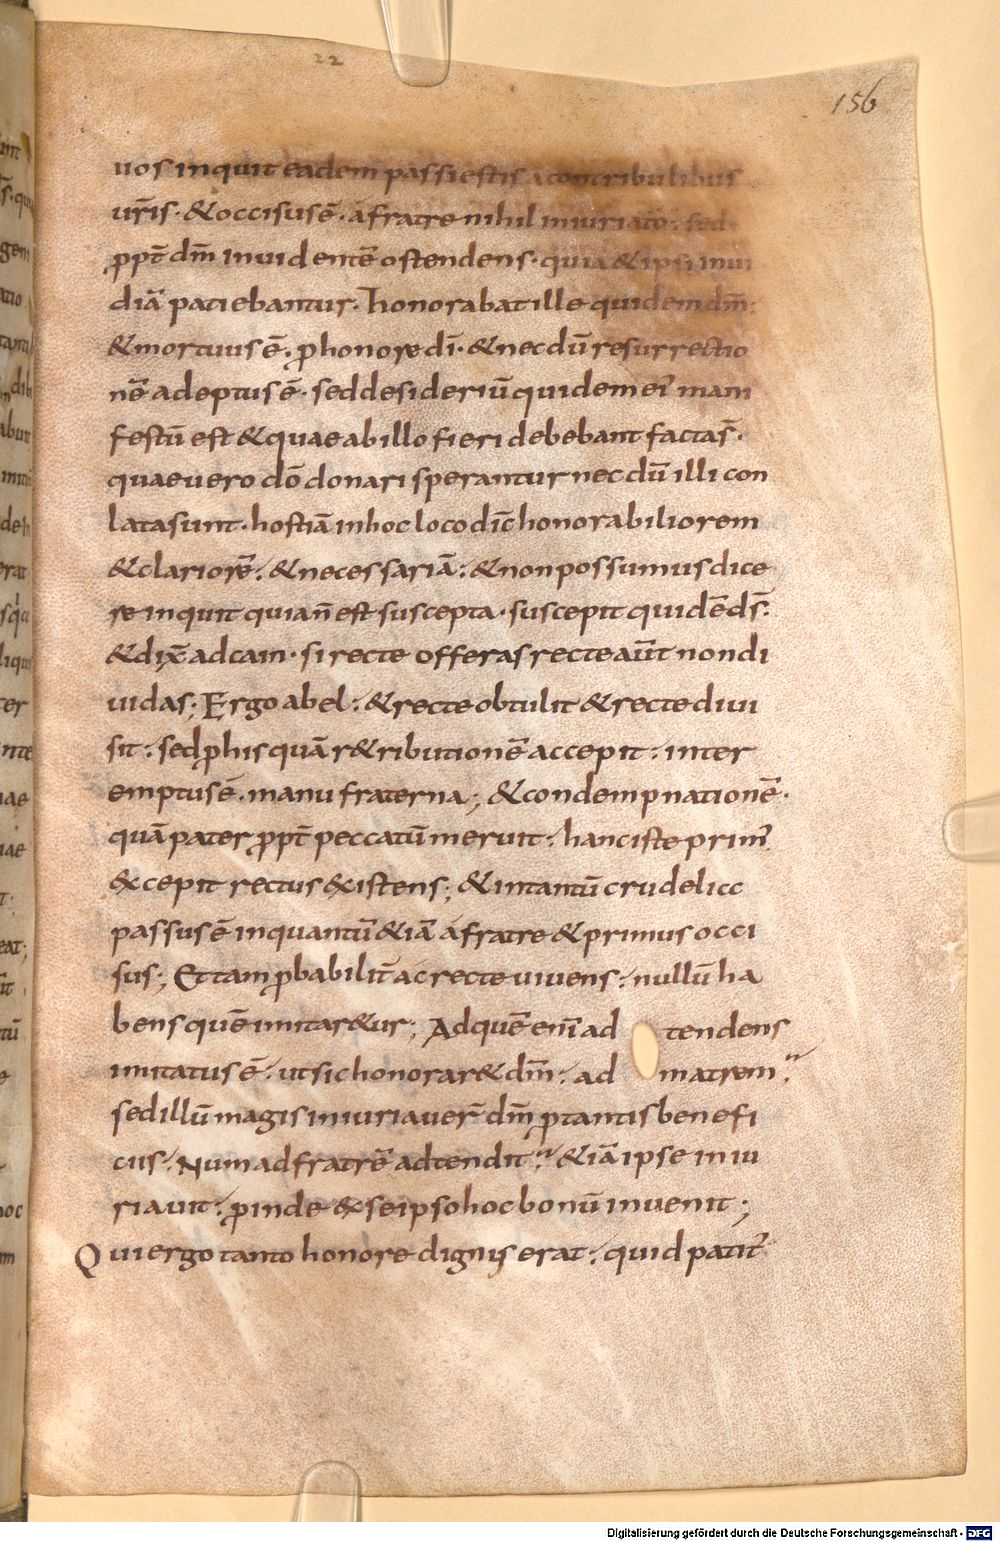 22
156
uos inquit eadem passi estis a contribulibus
ur̄is · & occisus ē · a fratre nihil iniuriato : sed
ꝓpt̄ dm̄ inuidentē ostendens · quia & ipsi inui
diā patiebantur · honorabat ille quidem dm̄ :
& mortuus ē : ꝓ honore dī · & nec dū resurrectio
nē adeptus ē · sed desideriū quidem ei' mani
festū est & quae ab illo fieri debebant facta s̄ ·
quae uero dō donari sperantur nec dū illi con
lata sunt · hostiā in hoc loco dic̄ honorabiliorem
& clariorē : & necessariā : & non possumus dice
re inquit quia n̄ est suscepta · suscepit quidē ds̄ :
& dix̄ ad cain · si recte offeras recte aūt non di
uidas ; Ergo abel : & recte obtulit & recte diui
sit : sed ꝓ his quā r&ributionē accepit : inter
emptus ē · manu fraterna ; & condempnationē ·
quā pater ꝓpt̄ peccatū meruit : hanc iste prim'
excepit rectus existens ; & in tantū crudelicc
passus ē in quantū & iā a fratre & primus occi
sus ; Et tam ꝓbabilit̄ ac recte uiuens : nullū ha
bens quē imitar&ur ; Ad quē enī ad tendens
imitatus ē : ut sic honorar& dm̄ : ad matrem :
sed illū magis iniuriauer̄ dm̄ p̄tantis benefi
cus : Num ad fratrē adtendit : & iā ipse iniu
riauit : ꝓinde ex seipso hoc bonū inuenit ;
Qui ergo tanto honore dignus erat : quid patit'
Digitalisierung gefördert durch die Deutsche Forschungsgemeinschaft - DFG